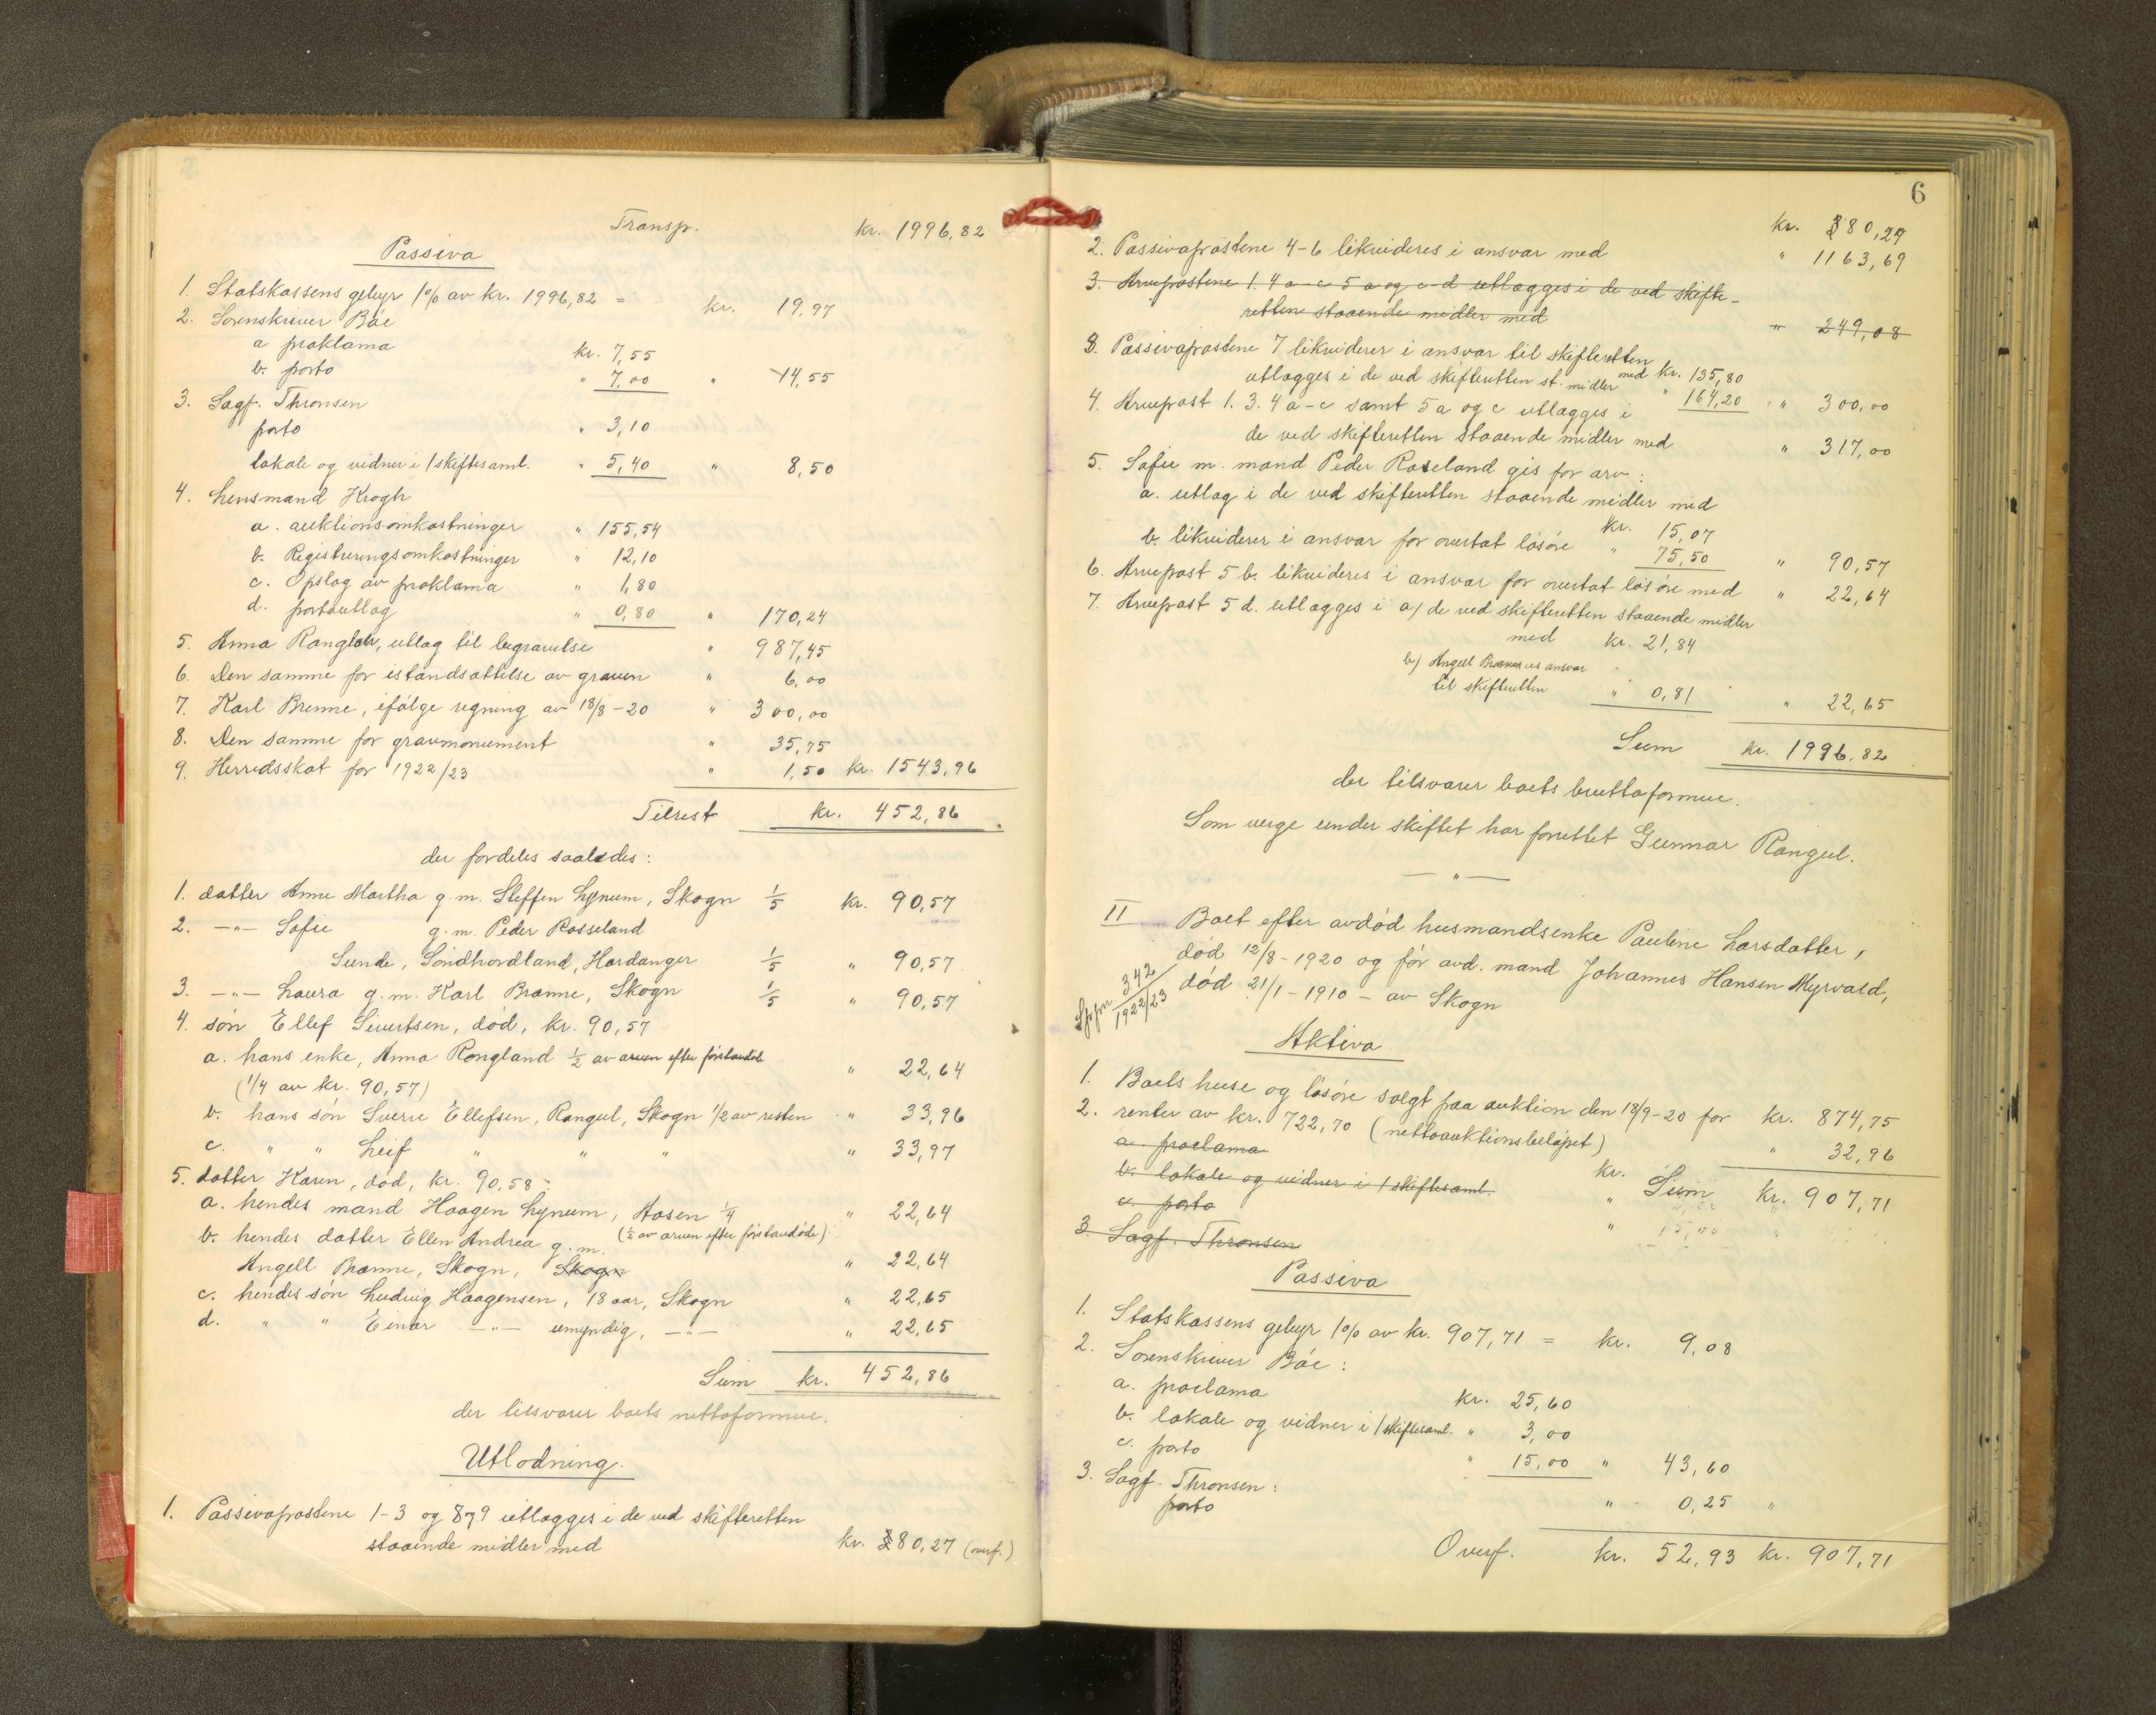 Transp. kr. 1996,82
Passiva
1. Statskassens gebyr 1% av kr. 1996,82 = kr. 19,97
2. Sorenskriver Bóe
a proklama kr. 7,55
b. porto " 7,00 " 14,55
3. Sagf. Thronsen
porto " 3,10
lokale og vidner i 1 skiftesaml. " 5,40 " 8,50
4. Lensmand Krogh
a. auktionsomkostninger " 155,54
b. Registreringsomkostninger " 12,10
c. Opslag av proklama " 1,80
d. portoutlag " 0,80 " 170,24
5. Anna Ranglan, utlag til begravelse " 987,45
6. Den samme for istandsættelse av graven " 6,00
7. Karl Brenne, ifølge regning av 18/8-20 " 300,00
8. Den samme for gravmonument " 35,75
9. Herredsskat for 1922/23 " 1,50 kr. 1543,96
Tilrest kr. 452,86
der fordeles saaledes:
1. datter Anne Martha g.m. Steffen Lynum, Skogn 1/5 kr. 90,57
2. -"- Sofie g.m. Peder Rosseland
Sunde, Söndhordland, Hardanger 1/5 " 90,57
3. -"- Laura g.m. Karl Brænne, Skogn 1/5 " 90,57
4. sön Ellef Sivertsen, död, kr. 90,57
a. hans enke, Anna Rongland 1/2 av arven efter förstavdöde
(1/4 av kr. 90,57) " 22,64
b. hans sön Sverre Ellefsen, Rangul, Skogn 1/2 av resten " 33,96
c. " " Leif " " " " 33,97
5. datter Karen, död, kr. 90,58:
a. hendes mand Haagen Lynum, Aasen 1/4 " 22,64
(1/2 av arven efter förstavdöde)
b. hendes datter Ellen Andrea g.m.
Angell Brænne, Skogn, Skogn " 22,64
c. hendes sön Ludvig Haagensen, 18 aar, Skogn " 22,65
d. " " Einar -"- umyndig, -"- " 22,65
Sum kr. 452,86
der tilsvarer boets nettoformue.
Utlodning.
1. Passivapostene 1-3 og 8-9 utlægges i de ved skifteretten
staaende midler med kr. 80,27 (overf.)
6
kr. 80,29
2. Passivapostene 4-6 likvideres i ansvar med " 1163,69
3. Arvepostene 1. 4 a-c 5 a og c-d utlægges i de ved skifte-
retten staaende midler med " 249,08
3. Passivapostene 7 likviderer i ansvar til skifteretten
med kr. 135,80
utlægges i de ved skifteretten st. midler " 164,20 " 300,00
4. Arvepost 1. 3. 4 a-c samt 5 a og c utlægges i
de ved skifteretten staaende midler med " 317,00
5. Sofie m. mand Peder Roseland gis for arv:
a. utlæg i de ved skifteretten staaende midler med
kr. 15,07
b. likviderer i ansvar for overtat lösöre " 75,50 " 90,57
6. Arvepost 5 b. likvideres i ansvar for overtat lösöre med " 22,64
7. Arvepost 5 d. utlægges i a) de ved skifteretten staaende midler
med kr. 21,84
b) Angell Brænnes ansvar
til skifteretten " 0,81 " 22,65
Sum kr. 1996,82
der tilsvarer boets bruttoformue.
Som verge under skiftet har forrettet Gunnar Rangul.
- " -
II Boet efter avdöd husmandsenke Pauline Larsdatter,
död 12/8-1920 og för avd. mand Johannes Hansen Myrvald,
död 21/1-1910 - av Skogn
342
1922/23
Aktiva
1. Boets huse og lösöre solgt paa auktion den 18/9-20 for kr. 874,75
2. renter av kr. 722,70 (nettoauktionsbelöpet) " 32,96
a. proclama kr.
b. lokale og vidner i 1 skiftesaml. " Sum kr. 907,71
c. porto " 15,00
3. Sagf. Thronsen
Passiva
1. Statskassens gebyr 1% av kr. 907,71 = kr. 9,08
2. Sorenskriver Bóe:
a. proclama kr. 25,60
b. lokale og vidner i 1 skiftesaml. " 3,00
c. porto " 15,00 " 43,60
3. Sagf. Thronsen:
porto " 0,25 "
Overf. kr. 52,93 kr. 907,71